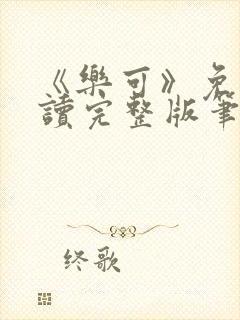 《樂可》免
讀完整版筆
终歌